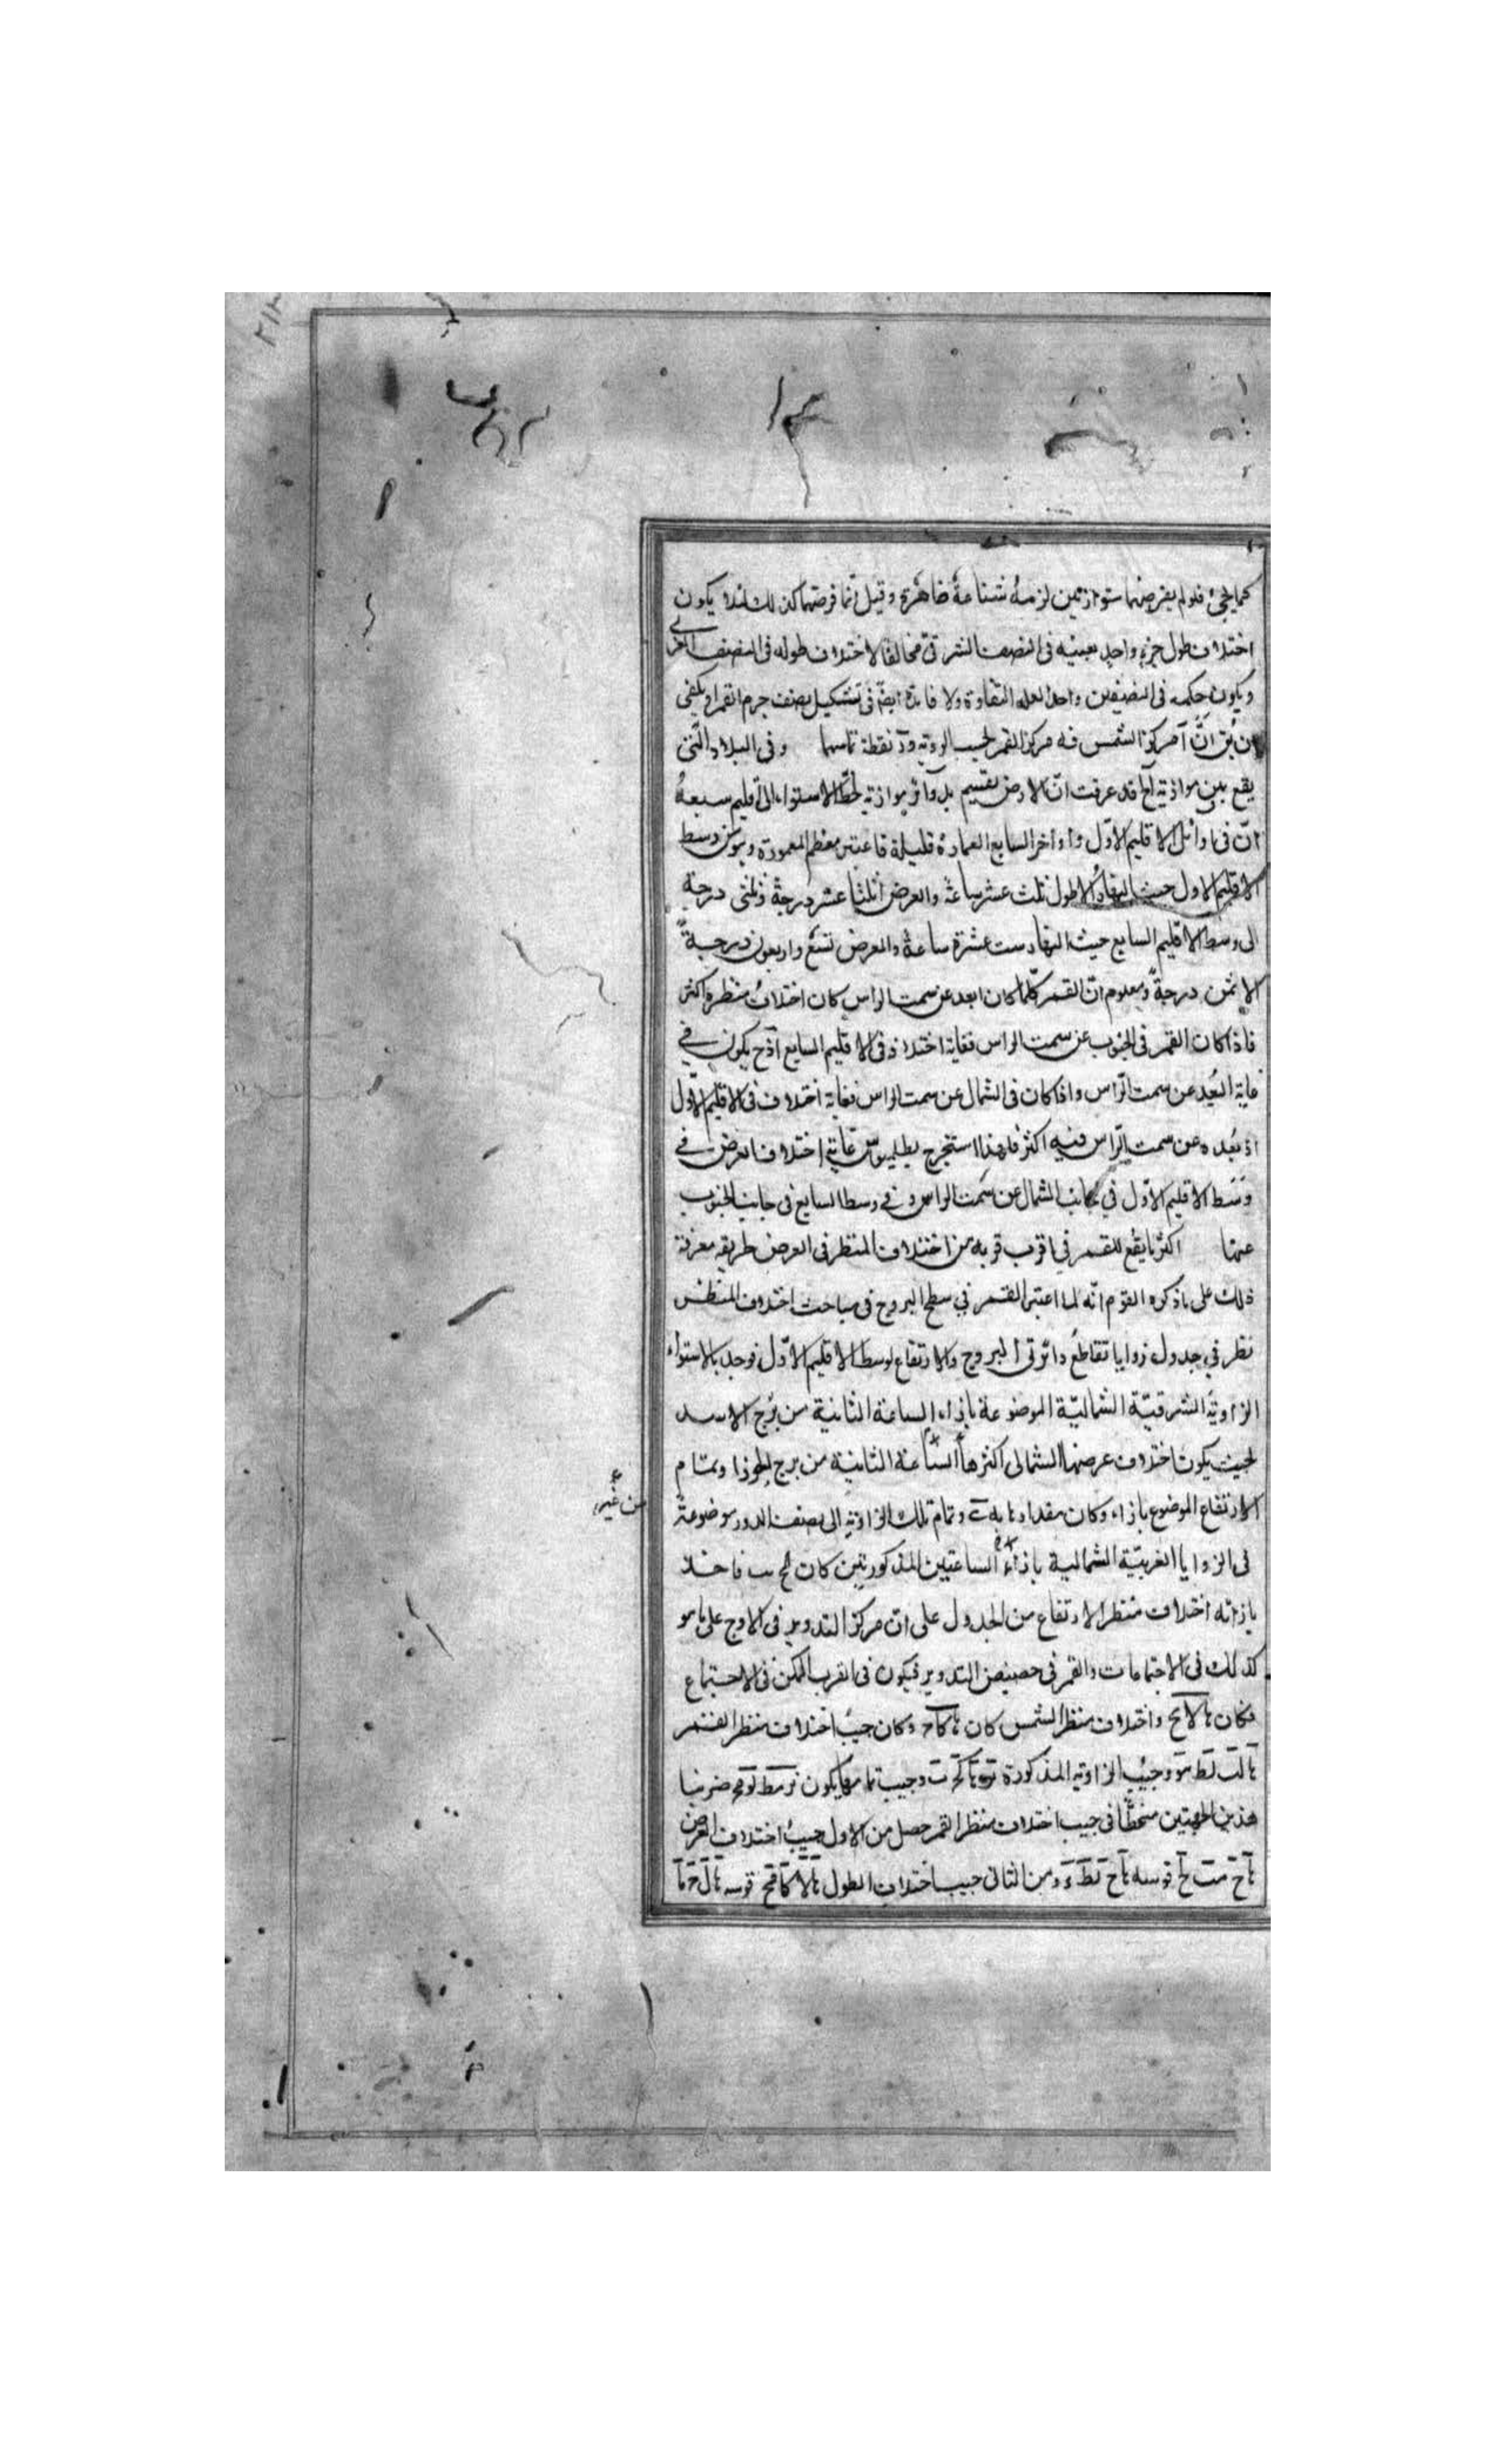 كما يجئ فلو لم يفرضهما متوازيين لزمه شناعة ظاهرة وقيل انما فرضهما كذلك لئلا يكون
اختلاف طول جزء واحد بعينه فى النصف الشرقى مخالفا لاختلاف طوله فى النصف الغربى
ويكون حكمه فى النصفين واحدا لعله التفاوة ولا فائدة ايضا فى تشكيل نصف جرم القمر او يكفى
ان يق انّ آ مركز الشمس فـه مركز القمر بحسب الروية و نقطة تماسهما وفى البلاد التى
يقع بين موازية آلخ قد عرفت انّ الارض تقسيم بدوائر موازية لخط الاستواء الى اقليم سبعة
انّ فى اوائل الاقليم الاوّل واواخر السابع العمارة قليلة فاعتبر معظم المعمورة وهو من وسط
الاقليم الاول حيث النهار الاطول ثلث عشر ساعة والعرض اثلثا عشر درجة وثلثى درجة
الى وسط الاقليم السابع حيث النهار ست عشرة ساعة والعرض تسع واربعون درجة
الا ثمن درجة ومعلوم انّ القمر كلما كان ابعد عن سمت الراس كان اختلاف منظره اكثر
فاذا كان القمر فى الجنوب عن سمت الراس فغاية اختلافه فى الاقليم السابع اذ ح يكون في
غاية البُعد عن سمت الرّاس واذا كان فى الشمال عن سمت الراس فغاية اختلاف فى الاقليم الاوّل
اذ بُعده عن سمت الرّاس فيه اكثر فلهذا استخرج بطلميوس غاية اختلاف العرض في
وَسَط الاقليم الاوّل في جانب الشمال عن سَمت الراس و في وسط السابع فى جانب الجنوب
عنها اكثر ما يقع للقمر في اقرب قربه من اختلاف المنظر فى العرض طريقه معرفة
ذلك على ما ذكره القوم انّه لما اعتبر القمر في سطح البروج فى مباحث اختلاف المنظر
نظر في جدول زوايا تقاطع دائرتى البروج والارتفاع لوسط الاقليم الاوّل فوجد بالاستواء
الزاوية الشرقيّة الشماليّة الموضوعة بازاء الساعة الثانية من بُرج الاسد
بحيث يكون اختلاف عرضها الشمالى اكثرها الساعة الثانية من برج الجوزا وتمام
من غيره
الارتفاع الموضوع بازاء وكان مقدارها وتمام تلك الزاوية الى نصف الدور موضوعة
فى الزوايا الغربيّة الشمالية بازاء الساعتين المذكورتين كان فاخذ
بازائه اختلاف منظر الارتفاع من الجدول على انّ مركز التدوير فى الاوج على ما هو
كذلك فى الاجتماعات والقمر فى حضيض التدوير فيكون فى القرب الممكن فى الاجتماع
فكان واختلاف منظر الشمس كان وكان جيب اختلاف منظر القمر
وجيب الزاوية المذكورة وجيب تمامها يكون ضربنا
هذين الجيبين منحطّا فى جيب اختلاف منظر القمر حصل من الاول جيبُ اختلاف العرض
قوسه ومن الثانى جيب اختلاف الطول قوسه